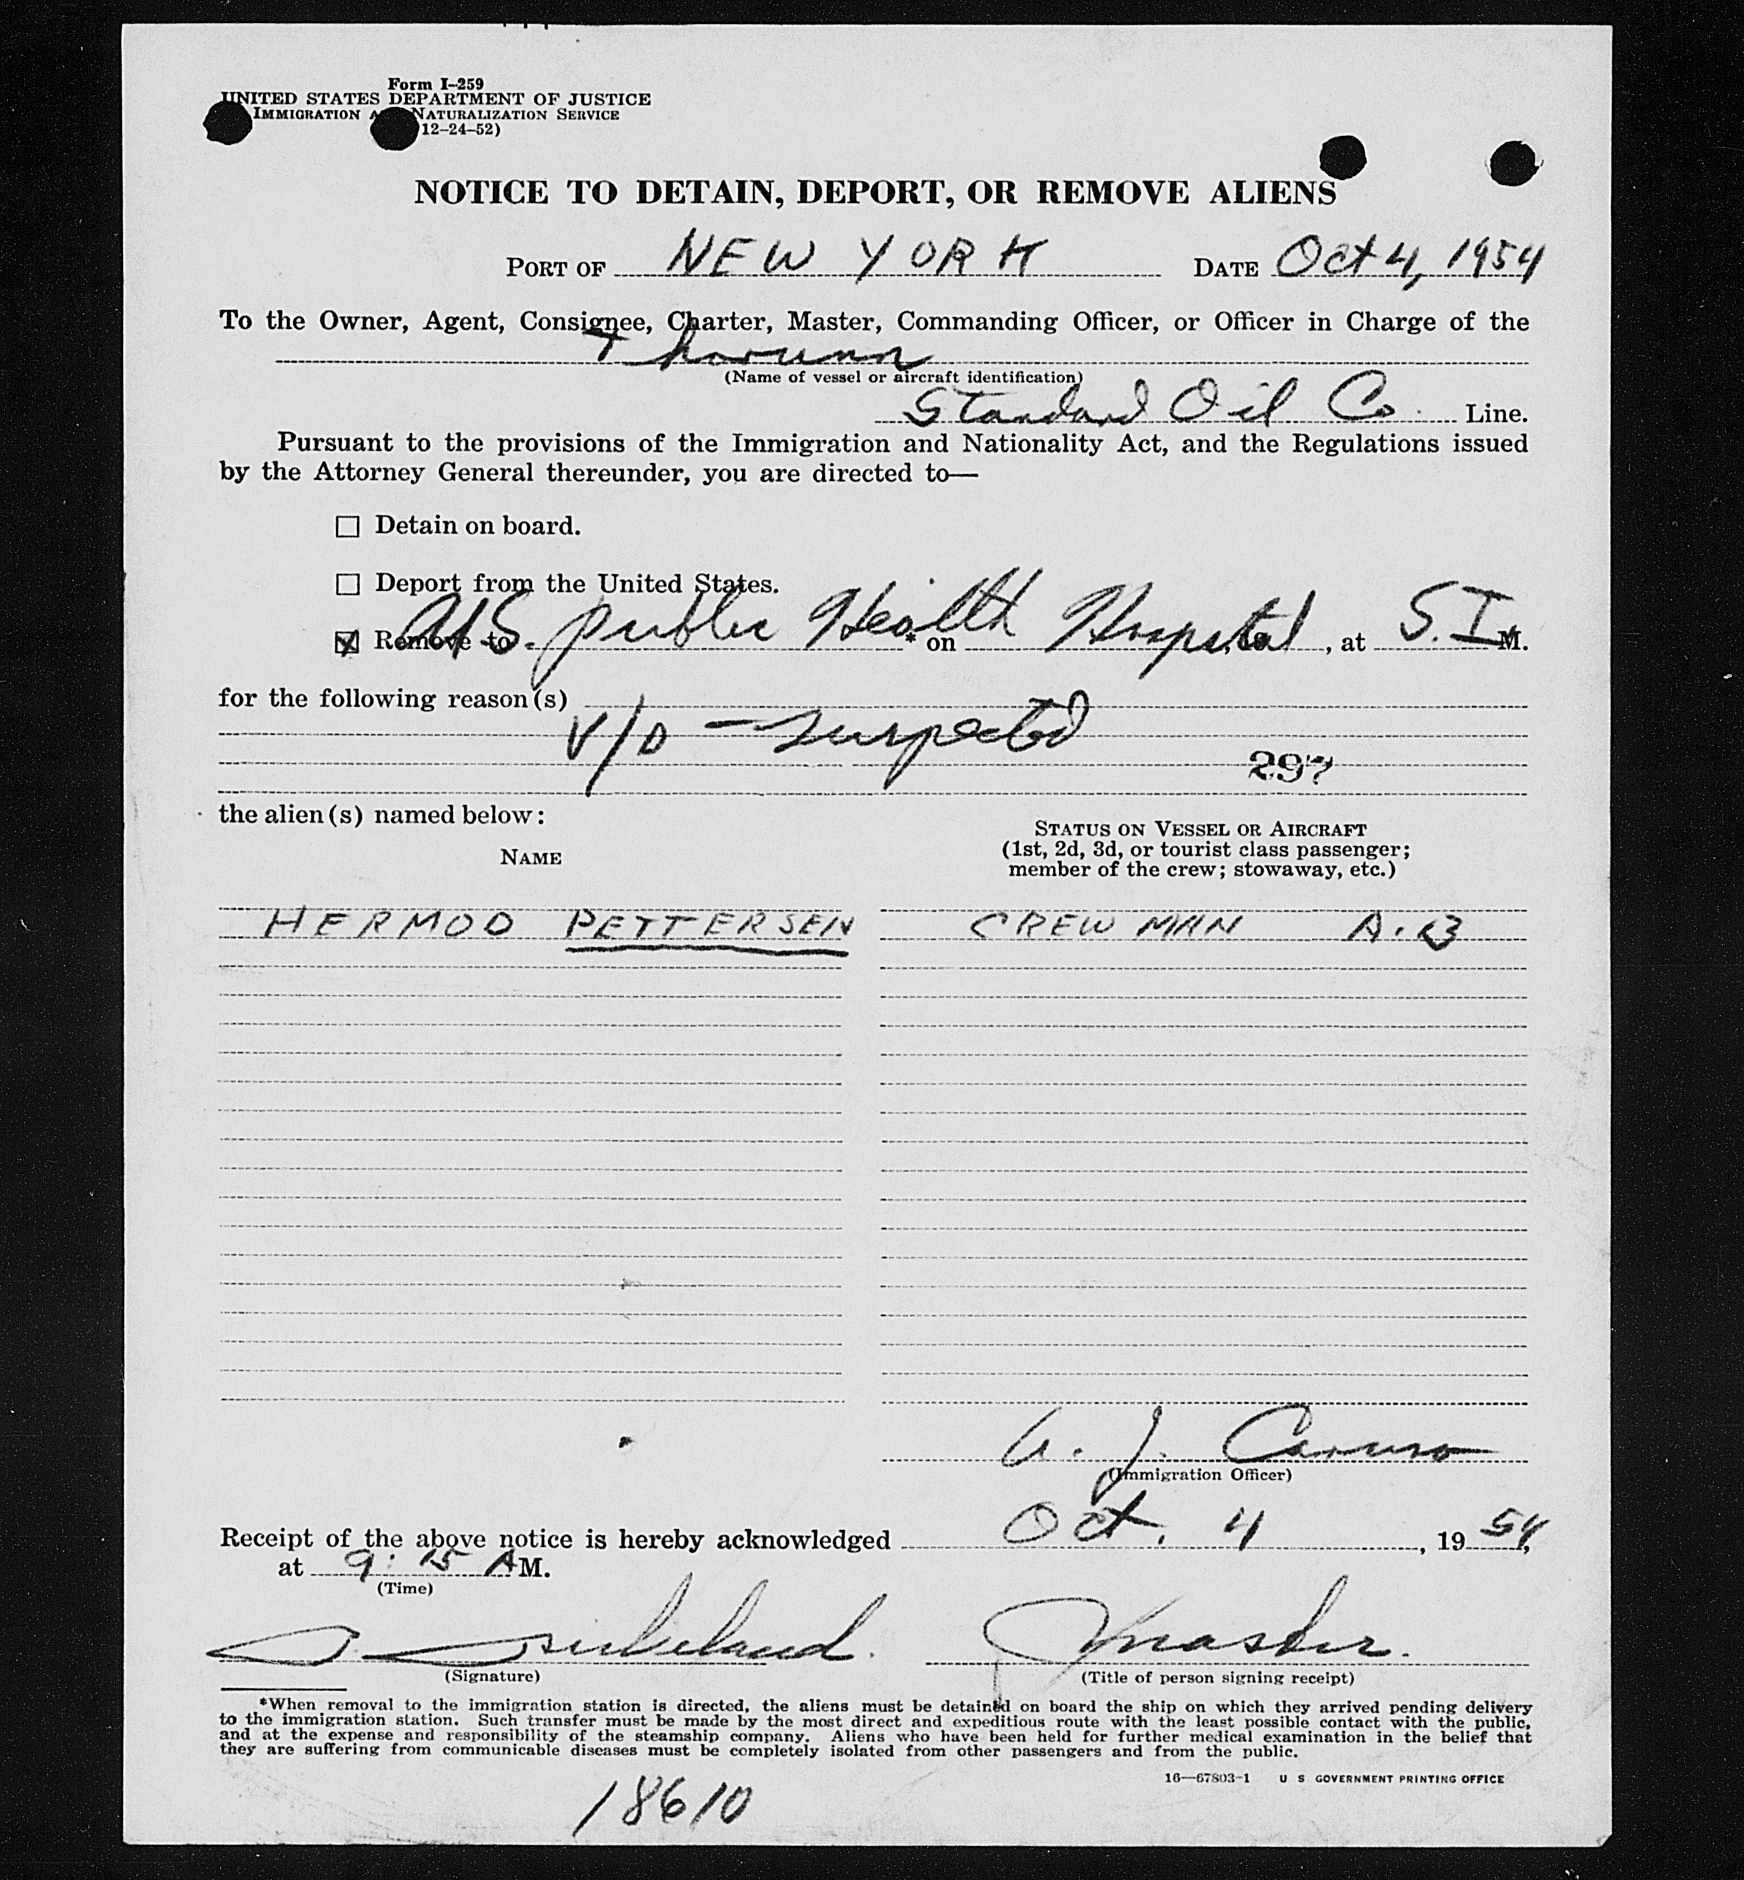 Form I-259
UNITED STATES DEPARTMENT OF JUSTICE
IMMIGRATION NATURALIZATION SERVICE
12-24-52)
NOTICE TO DETAIN, DEPORT, OR REMOVE ALIENS
PORT OF NEW YORK DATE Oct 4, 1954
To the Owner, Agent, Consignee, Charter, Master, Commanding Officer, or Officer in Charge of the
Thorunn
(Name of vessel or aircraft identification)
Standard Oil Co. Line.
Pursuant to the provisions of the Immigration and Nationality Act, and the Regulations issued
by the Attorney General thereunder, you are directed to—
☐ Detain on board.
☐ Deport from the United States.
☒ Remove to US Public Health * on Hospital, at S.I. M.
for the following reason(s)
V/D — suspected
297
the alien(s) named below:
STATUS ON VESSEL OR AIRCRAFT
(1st, 2d, 3d, or tourist class passenger;
member of the crew; stowaway, etc.)
NAME
HERMOD PETTERSEN CREW MAN A.B
A. J. Caruso
(Immigration Officer)
Receipt of the above notice is hereby acknowledged Oct. 4, 1954,
at 9:15 AM.
(Time)
Master.
(Signature) (Title of person signing receipt)
*When removal to the immigration station is directed, the aliens must be detained on board the ship on which they arrived pending delivery
to the immigration station. Such transfer must be made by the most direct and expeditious route with the least possible contact with the public,
and at the expense and responsibility of the steamship company. Aliens who have been held for further medical examination in the belief that
they are suffering from communicable diseases must be completely isolated from other passengers and from the public.
16—67803-1 U S GOVERNMENT PRINTING OFFICE
18610